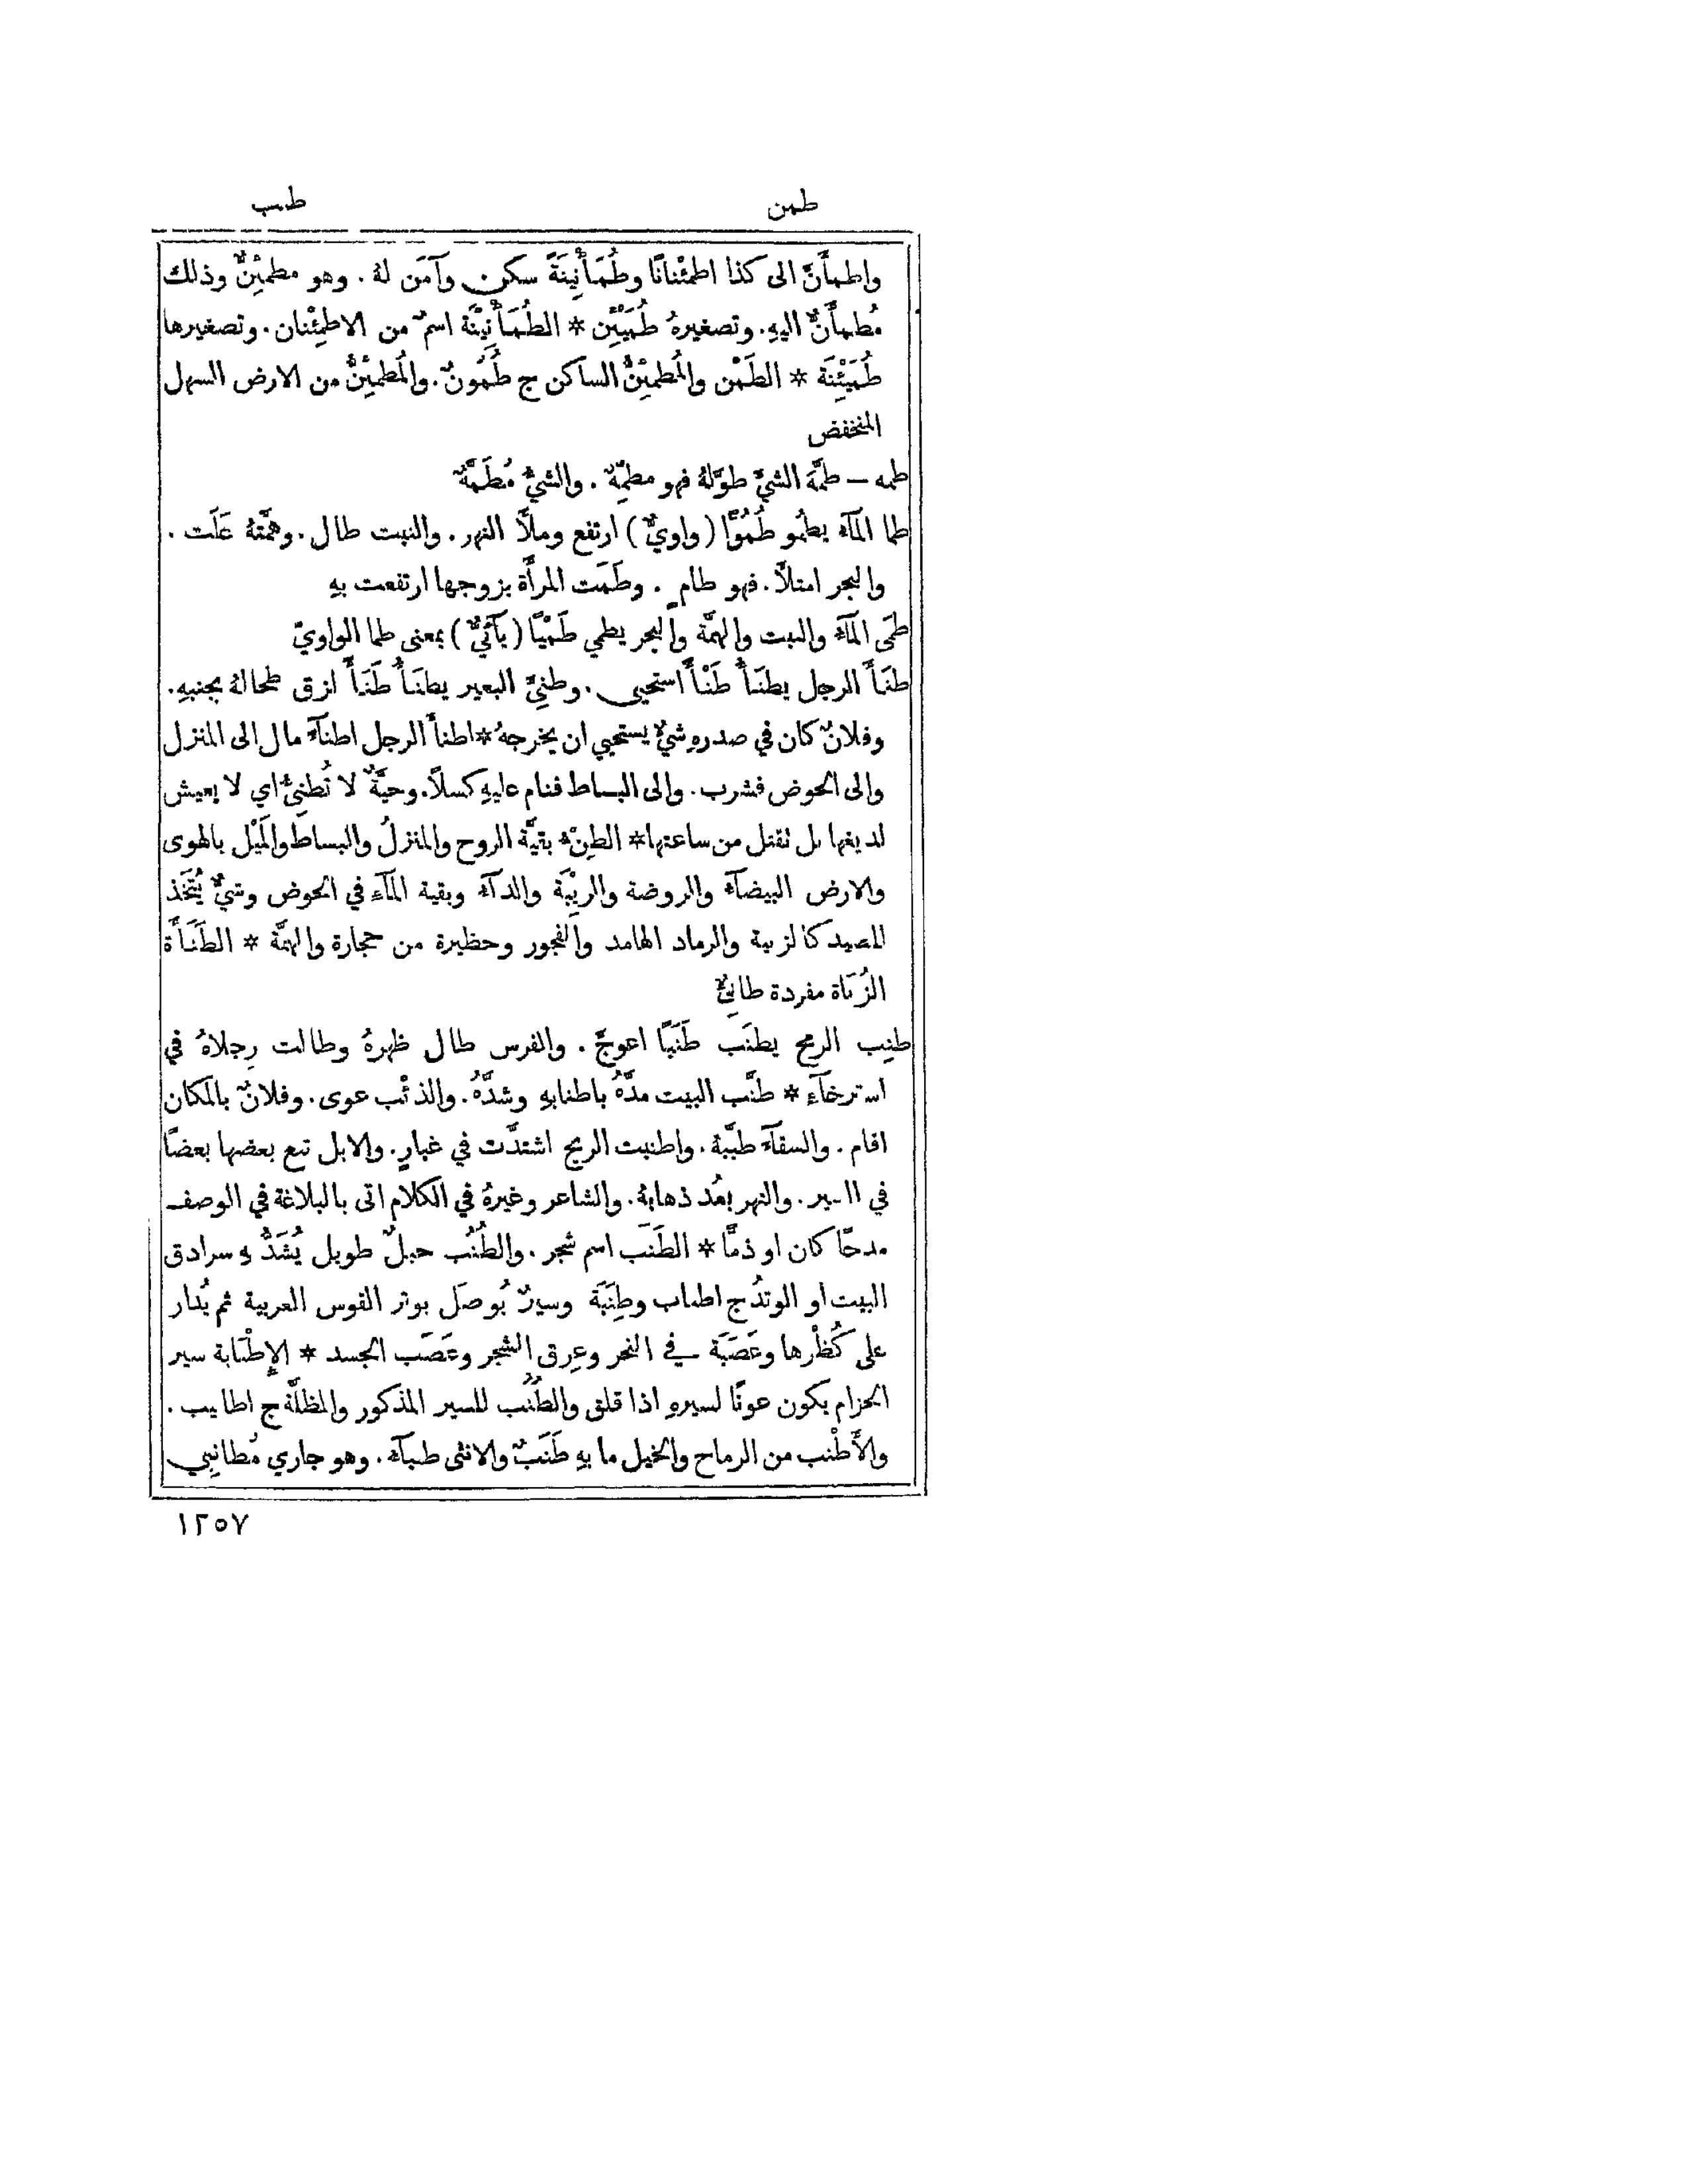 طمن طنب
واطمأَنَّ الى كذا اطمئْنانًا وطُمَأْنِينَةً سكن وآمَن لهُ . وهو مطمئِنٌّ وذلك
مُطمأَنٌّ اليهِ. وتصغيرهُ طُمَيْئِن * الطُمَأْنِيْنَة اسمٌ من الاطمِئْنان. وتصغيرها
طُمَيْئِنَة * الطَمْن والمُطمئِنُّ الساكن ج طُمُونٌ. والمُطمئِنُّ من الارض السهل
المنخفض
طمه — طمَّهَ الشيَّ طوَّلهُ فهو مطمِّهٌ . والشيُّ مُطَمَّهٌ
طما المآءُ يطمُو طُمُوًّا (واويٌّ) ارتفع وملأَ النهر. والنبت طال. وهمَّتهُ عَلَت .
والبحر امتلأَ. فهو طامٍ . وطَمَت المرأَة بزوجها ارتفعت بهِ
طمَى المآءُ والنبت والهمَّة والبحر يطمي طَمْيًا (يآئيٌّ) بمعنى طما الواويّ
طنَأَ الرجل يطنَأُ طَنْأً استحيى. وطنِئَ البعير يطنَأُ طَنَأً لزق طحالهُ بجنبهِ.
وفلانٌ كان في صدرهِ شيءٌ يستحيي ان يخرجهُ* اطنأَ الرجل اطنآءً مال الى المنزل
والى الحوض فشرب. والى البساط فنام عليهِ كسلاً. وحيَّةٌ لا تُطنِئُ اي لا يعيش
لديغها بل تقتل من ساعتها* الطِنْءُ بقيَّة الروح والمنزلُ والبساطُ والمَيْل بالهوى
والارض البيضآءُ والروضة والرِيْبَة والدآءُ وبقية المآءِ في الحوض وشيءٌ يُتَّخَذ
للصيد كالزبية والرماد الهامد والفجور وحظيرة من حجارة والهمَّة * الطَنَأَة
الزُنَاة مفردة طانِئٌ
طنِب الرمح يطنَب طَنَبًا اعوجَّ . والفرس طال ظهرهُ وطالت رِجلاهُ في
استرخآءٍ * طنَّب البيت مدَّهُ باطنابهِ وشدَّهُ. والذئْب عوى. وفلانٌ بالمكان
اقام . والسقآءَ طنَّبهُ. واطنبت الريح اشتدَّت في غبارٍ. والابل تبع بعضها بعضًا
في السير. والنهر بعُد ذهابهُ. والشاعر وغيرهُ في الكلام اتى بالبلاغة في الوصف
مدحًا كان او ذمًّا * الطَنَب اسم شجر . والطُنُب حبلٌ طويل يُشَدُّ بهِ سرادق
البيت او الوتدُ ج اطناب وطِنَبَة وسيرٌ يُوصَل بوتر القوس العربية ثم يُدار
على كُظْرها وعَصَبَة في النحر وعِرق الشجر وعَصَب الجسد * الإِطْنَابة سير
الحزام يكون عونًا لسيرهِ اذا قلق والطُنُب للسير المذكور والمظلَّة ج اطانيب .
والأَطْنب من الرماح والخيل ما بهِ طَنَبٌ والانثى طنبآءُ. وهو جاري مُطانِبي
١٢٥٧